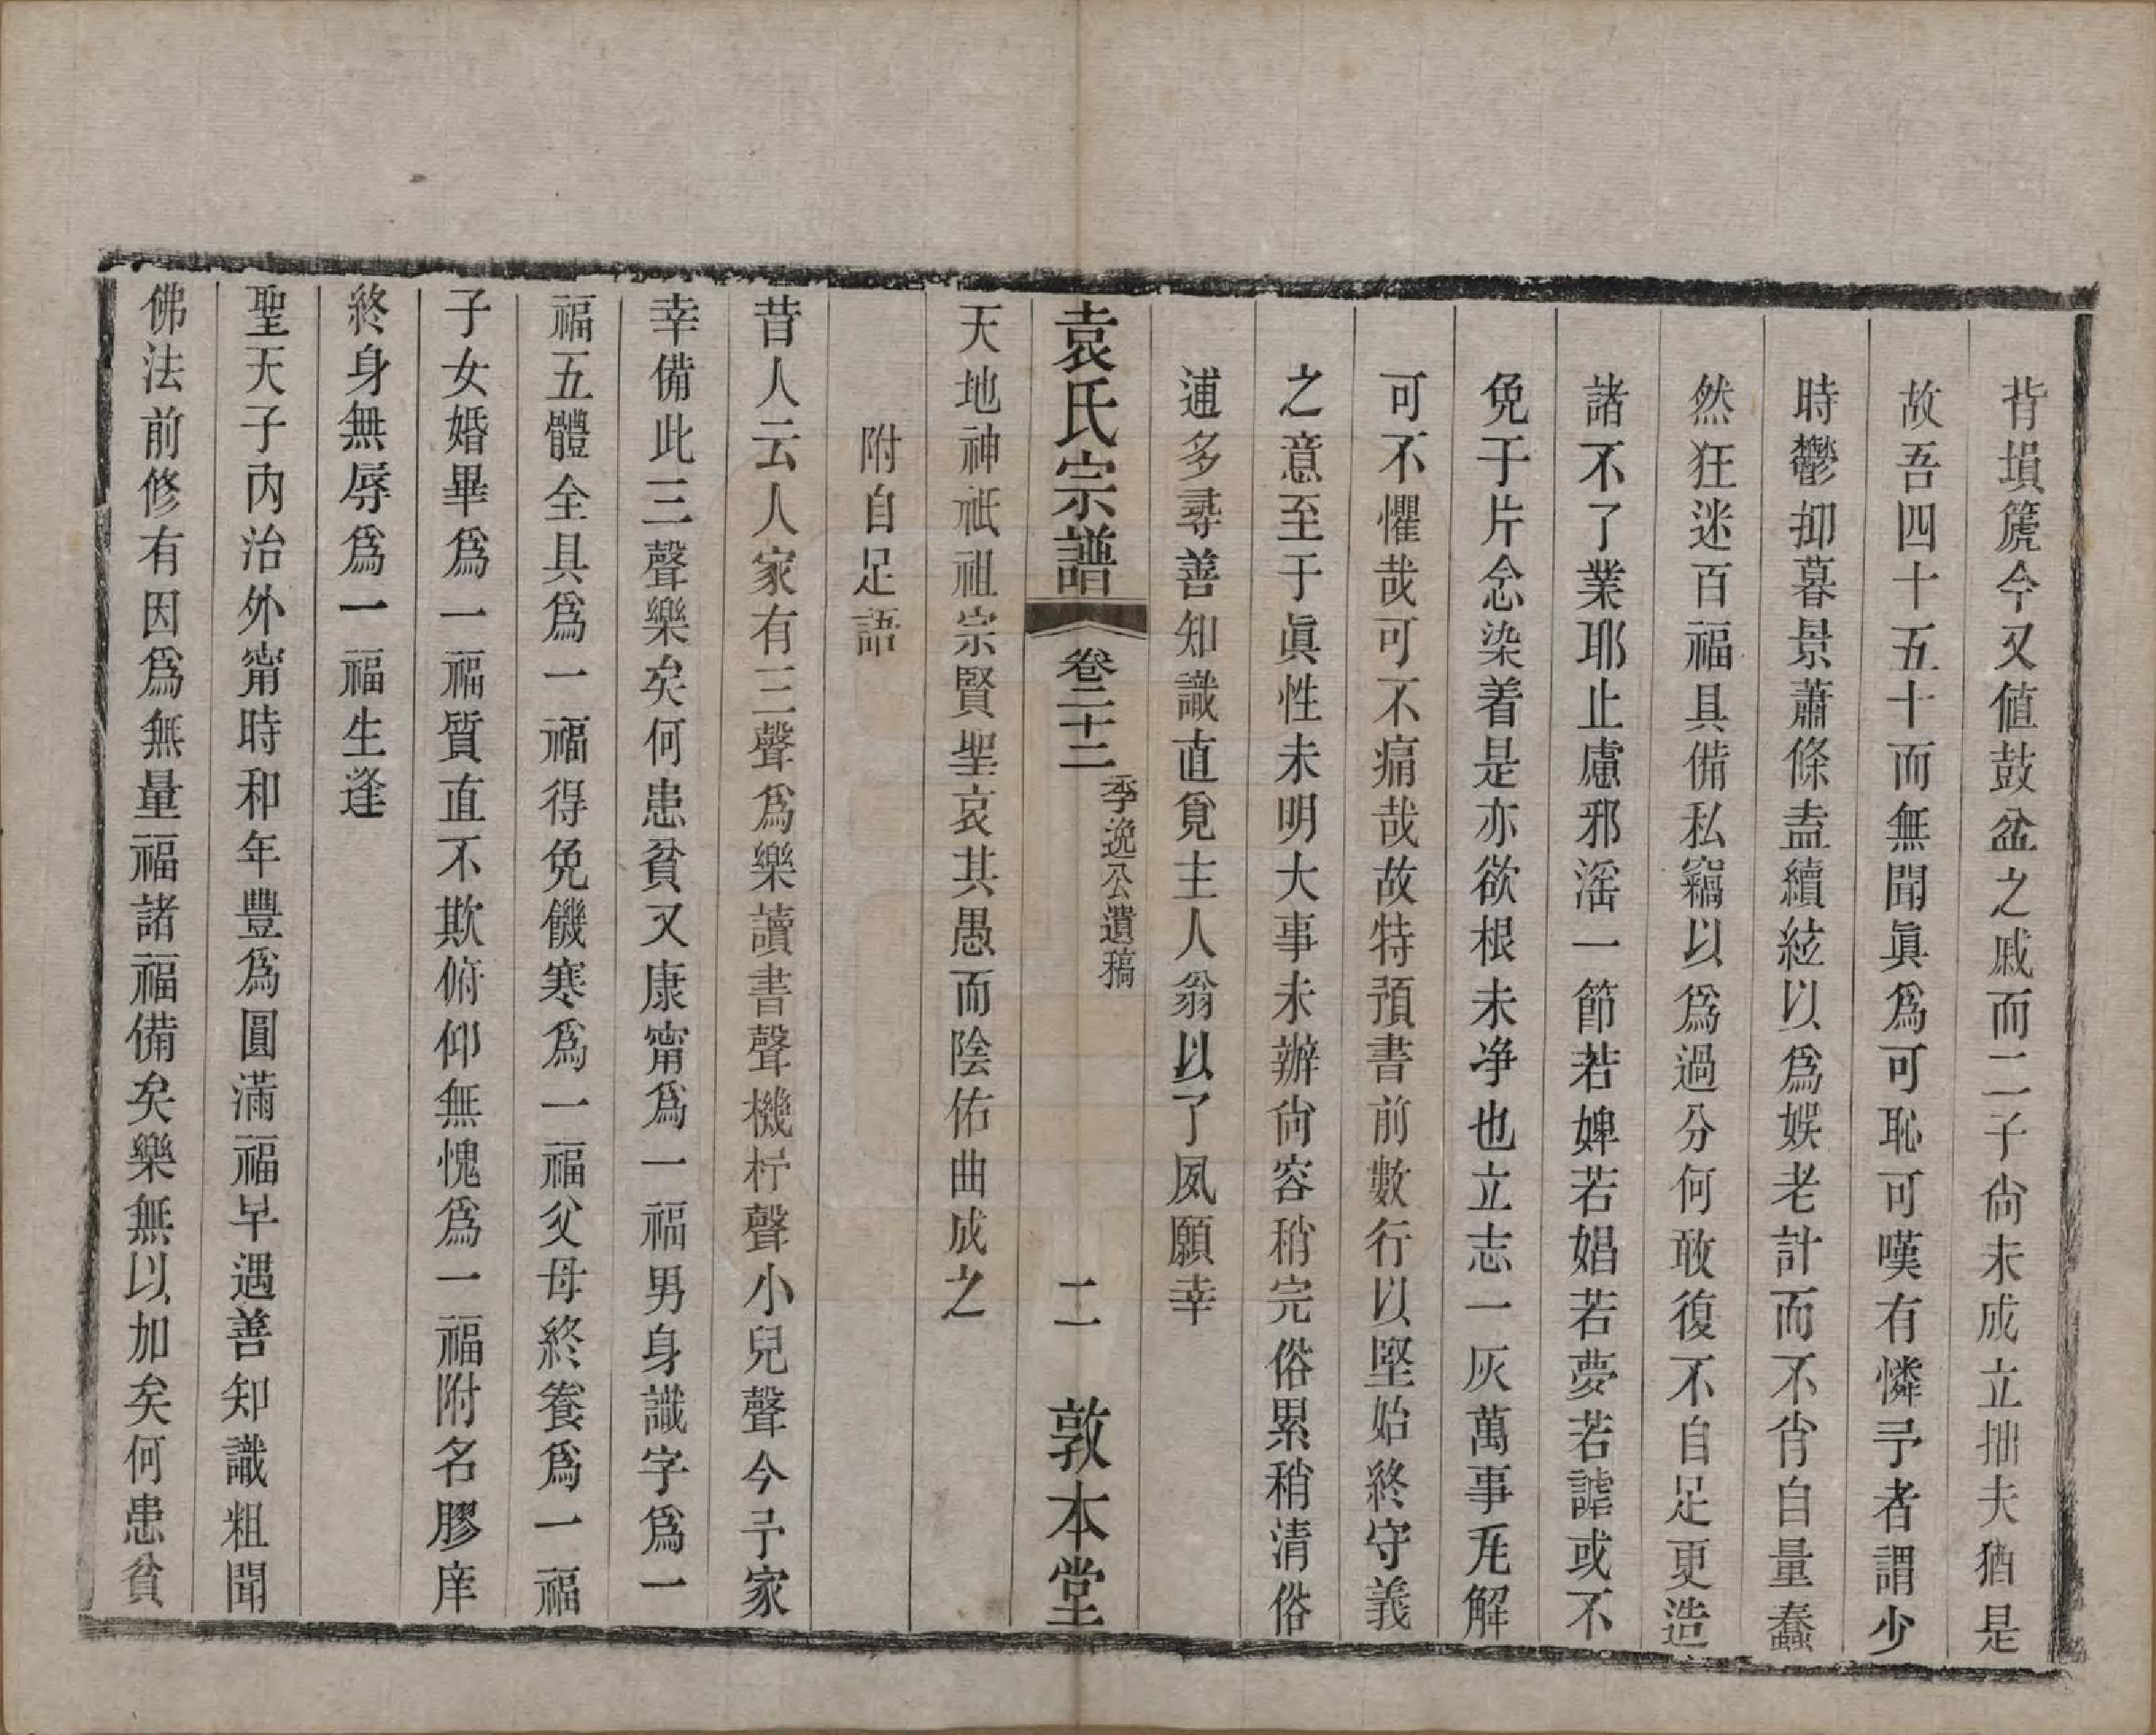 背塤篪今又値鼓盆之戚而二子尙未成立拙夫猶是
故吾四十五十而無聞眞爲可恥可嘆有憐予者謂少
時鬱抑暮景蕭條盍續絃以爲娛老計而不肖自量蠢
然狂迷百福具備私竊以爲過分何敢復不自足更造
諸不了業耶止慮邪滛一節若婢若娼若夢若謔或不
免于片念染着是亦欲根未净也立志一灰萬事瓦解
可不懼哉可不痛哉故特預書前數行以堅始終守義
之意至于眞性未明大事未辦尙容稍完俗累稍清俗
逋多尋善知識直覓主人翁以了夙願幸
袁氏宗譜
卷二十二
季逸公遺稿
二
敦本堂
天地神祇祖宗賢聖哀其愚而陰佑曲成之
附自足語
昔人云人家有三聲爲樂讀書聲機杼聲小兒聲今予家
幸備此三聲樂矣何患貧又康甯爲一福男身識字爲一
福五體全具爲一福得免饑寒爲一福父母終養爲一福
子女婚畢爲一福質直不欺俯仰無愧爲一福附名膠庠
終身無辱爲一福生逢
聖天子內治外甯時和年豐爲圓滿福早遇善知識粗聞
佛法前修有因爲無量福諸福備矣樂無以加矣何患貧